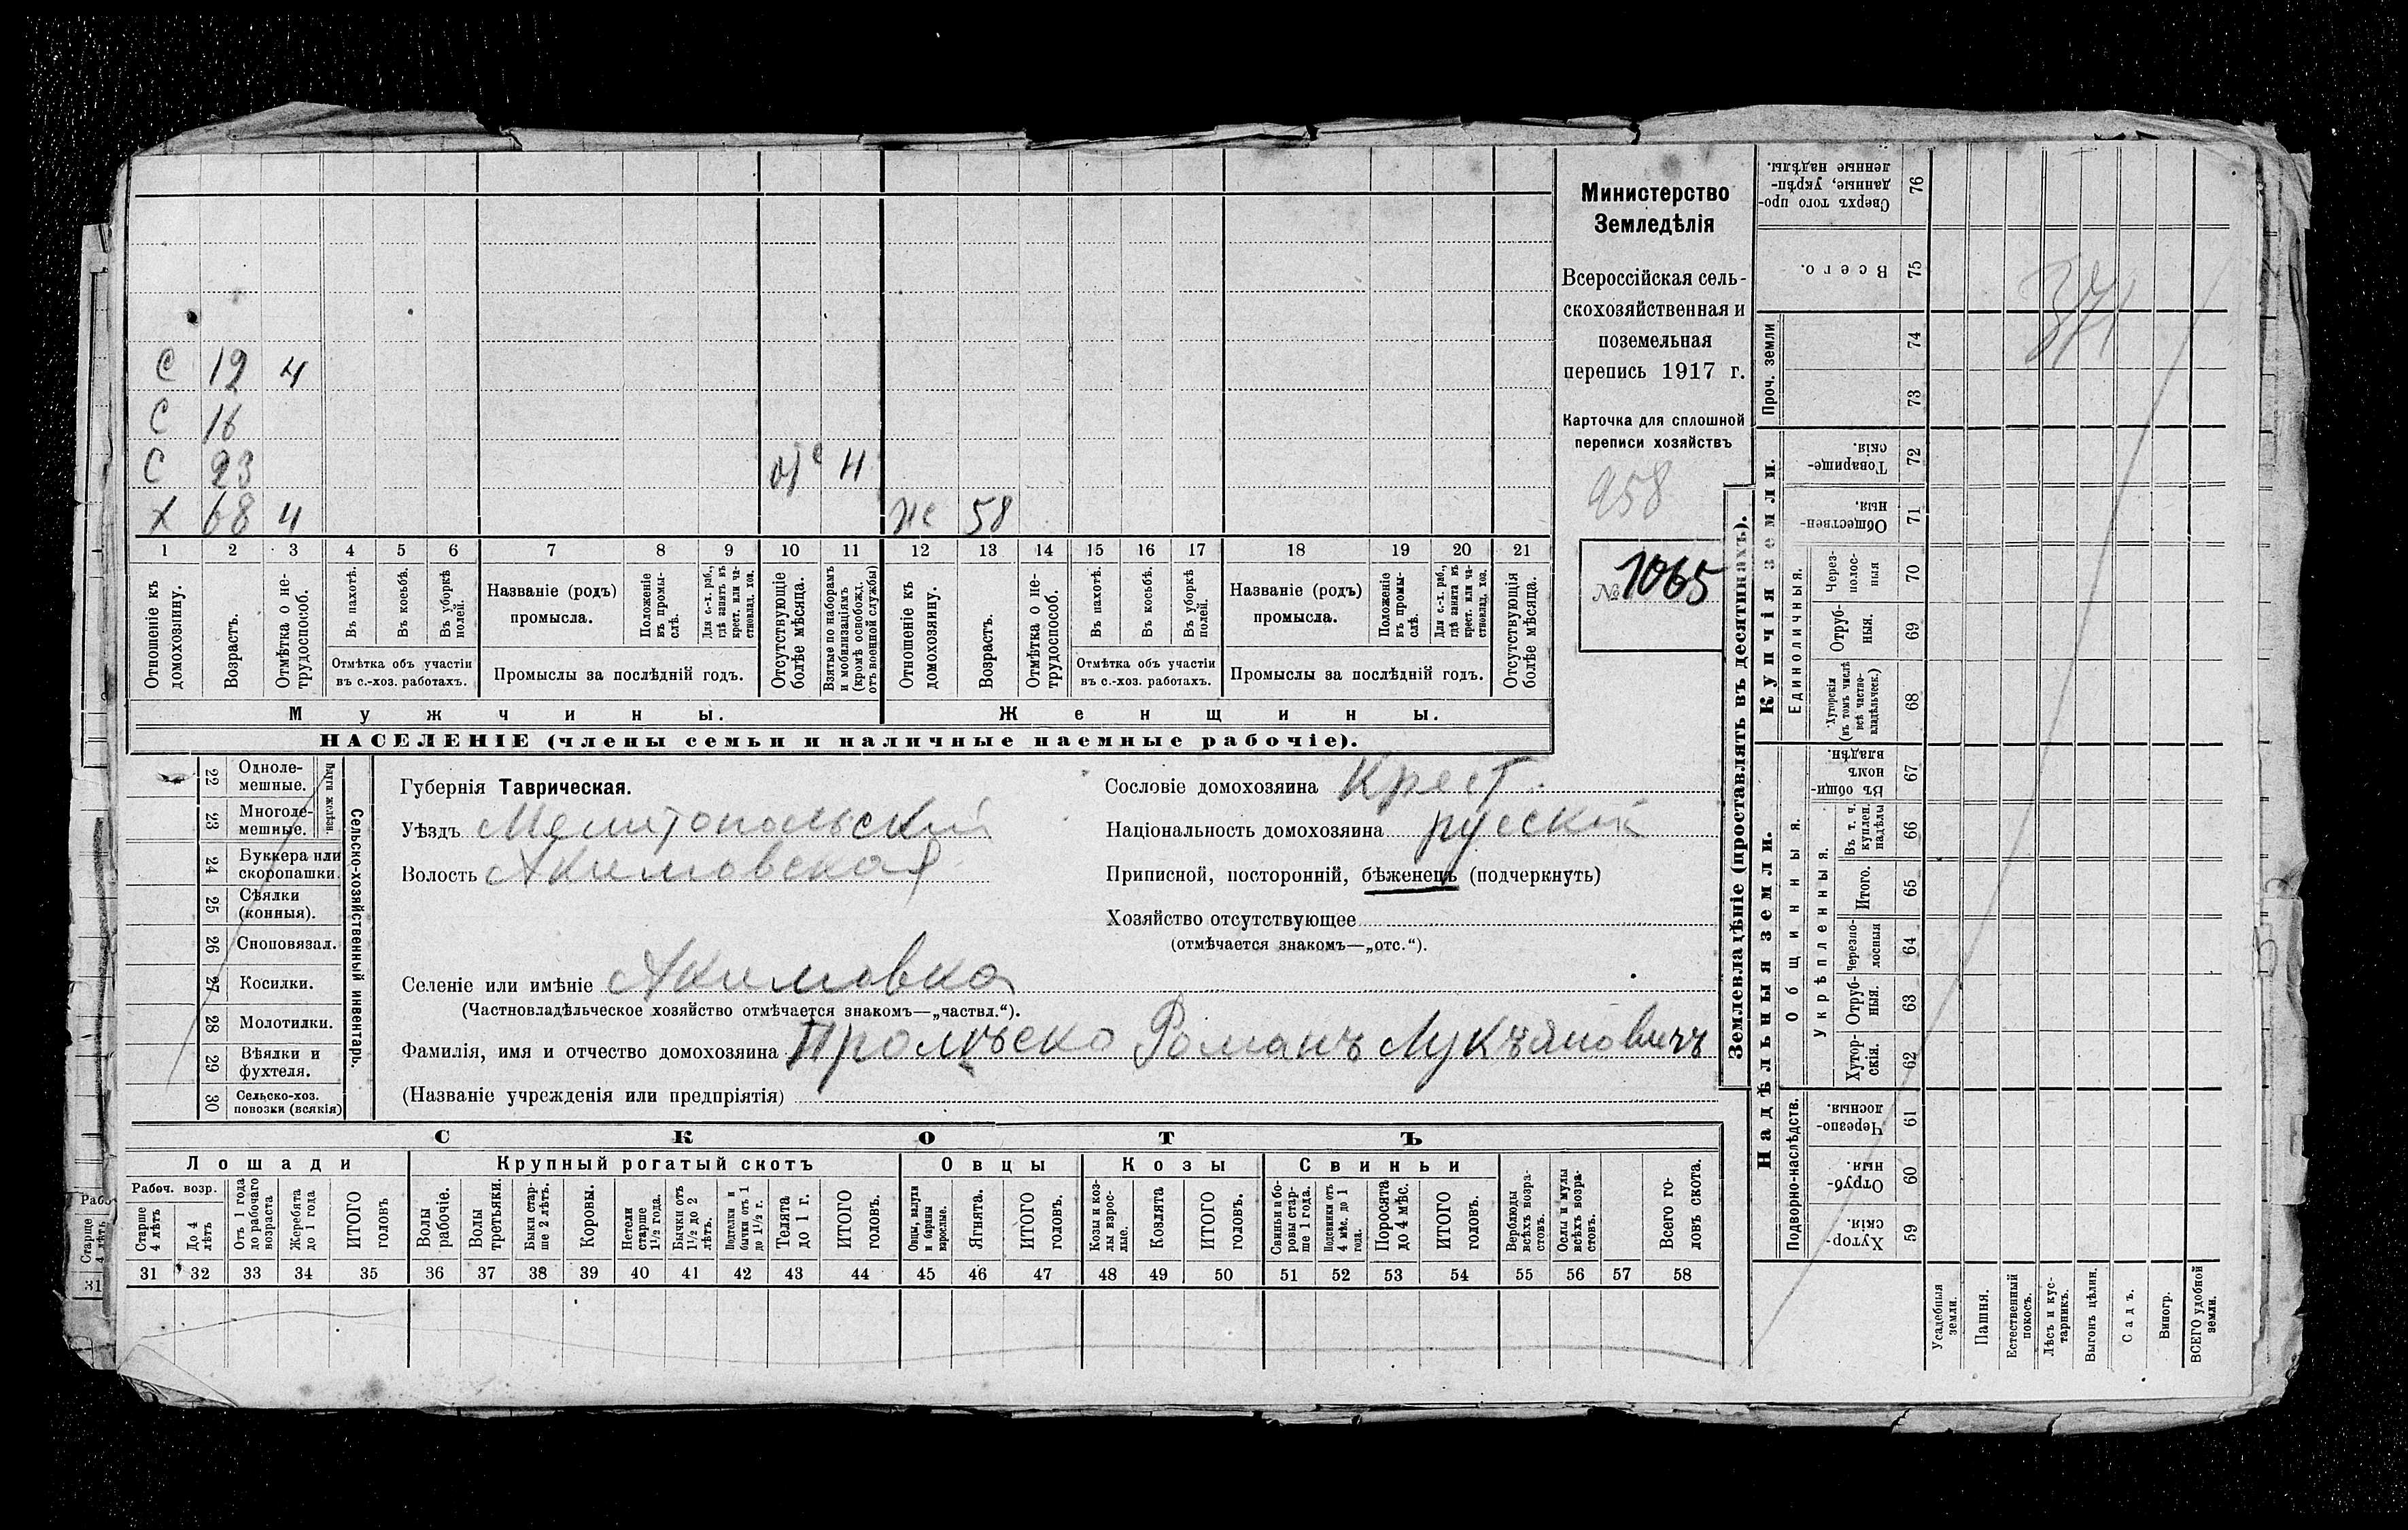 С 12 ч
С 16
С 23 н
Х 68 ч Же 58
1 2 3 4 5 6 7 8 9 10 11 12 13 14 15 16 17 18 19 20 21
Отношеніе къ домохозяину.
Возрастъ.
Отмѣтка о не-трудоспособ.
Въ пахотѣ.
Въ косьбѣ.
Въ уборкѣ полей.
Отмѣтка объ участіи
въ с.-хоз. работахъ.
Названіе (родъ)
промысла.
Положеніе въ промы-слѣ.
Для с.-х. раб., гдѣ занятъ въ крест. или ча-стновлад. хоз.
Промыслы за послѣдній годъ.
Отсутствующіе болѣе мѣсяца.
Взятые по наборамъ и мобилизаціямъ (кромѣ освобожд. отъ военной службы)
Отношеніе къ домохозяину.
Возрастъ.
Отмѣтка о не-трудоспособ.
Въ пахотѣ.
Въ косьбѣ.
Въ уборкѣ полей.
Отмѣтка объ участіи
въ с.-хоз. работахъ.
Названіе (родъ)
промысла.
Положеніе въ промы-слѣ.
Для с.-х. раб., гдѣ занята въ крест. или ча-стновлад. хоз.
Промыслы за послѣдній годъ.
Отсутствующія болѣе мѣсяца.
Мужчины. Женщины.
НАСЕЛЕНІЕ (члены семьи и наличные наемные рабочіе).
Министерство
Земледѣлія
Всероссійская сель-
скохозяйственная и
поземельная
перепись 1917 г.
Карточка для сплошной
переписи хозяйствъ
958
№ 1065
22 Одноле-мешные.
23 Многоле-мешные.
Плуги желѣзн.
24 Буккера или скоропашки.
25 Сѣялки (конныя).
26 Сноповязал.
27 Косилки.
28 Молотилки.
29 Вѣялки и фухтеля.
30 Сельско-хоз. повозки (всякія)
Сельско-хозяйственный инвентарь.
Губернія Таврическая.
Уѣздъ Мелитопольский
Волость Акимовская
Сословіе домохозяина Крест.
Національность домохозяина русский
Приписной, посторонній, бѣженецъ (подчеркнуть)
Хозяйство отсутствующее
(отмѣчается знакомъ—„отс.“).
Селеніе или имѣніе Акимовка
(Частновладѣльческое хозяйство отмѣчается знакомъ—„частвл.“).
Фамилія, имя и отчество домохозяина Романъ Лукъяновичъ
(Названіе учрежденія или предпріятія)
СКОТЪ
Лошади Крупный рогатый скотъ Овцы Козы Свиньи
Рабоч. возр.
Старше 4 лѣтъ
До 4 лѣтъ
Отъ 1 года до рабочаго возраста
Жеребята до 1 года
ИТОГО головъ
Волы рабочіе.
Волы третьяки.
Быки стар-ше 2 лѣтъ.
Коровы.
Нетели старше 1½ года.
Бычки отъ 1½ до 2 лѣтъ.
Подтелки и бычки отъ 1 до 1½ г.
Телята до 1 г.
ИТОГО головъ.
Овцы, валухи и бараны взрослые.
Ягнята.
ИТОГО головъ.
Козы и коз-лы взрос-лые.
Козлята
ИТОГО головъ.
Свиньи и бо-ровы стар-ше 1 года.
Подсвинки отъ 4 мѣс. до 1 года.
Поросята до 4 мѣс.
ИТОГО головъ.
Верблюды всѣхъ возра-стовъ.
Ослы и мулы всѣхъ возра-стовъ.
Всего го-ловъ скота.
31 32 33 34 35 36 37 38 39 40 41 42 43 44 45 46 47 48 49 50 51 52 53 54 55 56 57 58
Землевладѣніе (проставлять въ десятинахъ).
Купчія земли.
Надѣльныя земли.
Сверхъ того про-данные, укрѣп-ленные надѣлы. 76
Всего. 75
Проч. земли 74
73
Товарище-скія. 72
Обществен-ныя. 71
Единоличныя.
Через-полос-ныя 70
Отруб-ныя. 69
Хуторскія (въ томъ числѣ всѣ частно-владѣльческ.) 68
Въ общи-номъ владѣн. 67
Общинныя.
Укрѣпленныя.
Въ т. ч. куплен. надѣлы 66
Итого. 65
Черезпо-лосныя 64
Отруб-ныя. 63
Хутор-скія. 62
Подворно-наслѣдств.
Черезпо-лосныя. 61
Отруб-ныя. 60
Хутор-скія. 59
Усадебныя земли.
Пашня.
Естественный покосъ.
Лѣсъ и кус-тарникъ.
Выгонъ цѣлин.
Садъ.
Виногр.
ВСЕГО удобной земли.
Старше
31